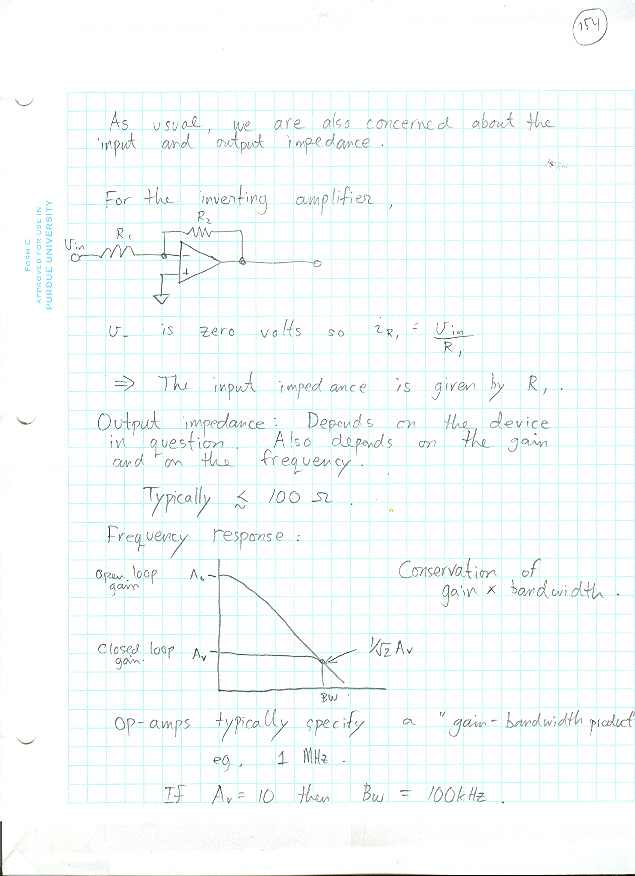 154
As usual, we are also concerned about the
input and output impedance.
For the inverting amplifier,
R₂
R₁
Vin
-
+
FORM C
APPROVED FOR USE IN
PURDUE UNIVERSITY
V₋ is zero volts so iR₁ = Vin/R₁
⇒ The input impedance is given by R₁.
Output impedance: Depends on the device
in question. Also depends on the gain
and on the frequency.
Typically ≲ 100 Ω.
Frequency response:
Open loop A₀
gain
Conservation of
gain x bandwidth.
Closed loop Av
gain.
1/√2 Av
BW
Op-amps typically specify a "gain-bandwidth product"
eg. 1 MHz.
If Av = 10 then BW = 100kHz.